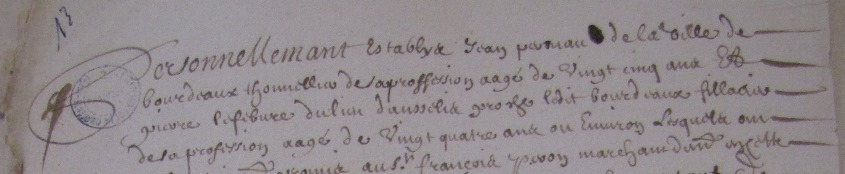 13
Personnellemant Establys Jean de la Ville de
bourdeaux thonnellier de sa proffession aagé de Vingt cinq ans Et
pierre lefebvre du lieu proche ledit bourdeaux
de sa profession aagé de Vingt quatre ans ou Environ Lesquels ont
au Sr françois peron marchand